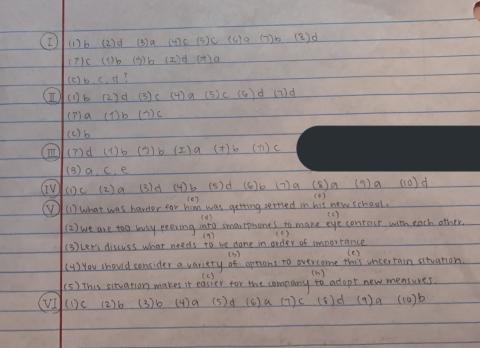 I (1)b (2)d (3)a (4)c (5)c (6)a (7)b (8)d
(ア)c (イ)b (ウ)b (エ)d (オ)a
(C)b c, d ?
II (1)b (2)d (3)c (4)a (5)c (6)d (7)d
(ア)a (イ)b (ウ)c
(C)b
III (ア)d (イ)b (ウ)b (エ)a (オ)b (カ)c
(B) a, c, e
IV (1)c (2)a (3)d (4)b (5)d (6)b (7)a (8)a (9)a (10)d
(e) (a)
V (1) What was harder for him was getting settled in his new school.
(d) (c)
(2) We are too busy peering into smartphones to make eye contact with each other.
(g) (c)
(3) Let's discuss what needs to be done in order of importance
(b) (e)
(4) You should consider a variety of options to overcome this uncertain situation.
(c) (h)
(5) This situation makes it easier for the company to adopt new measures.
VI (1)c (2)b (3)b (4)a (5)d (6)a (7)c (8)d (9)a (10)b